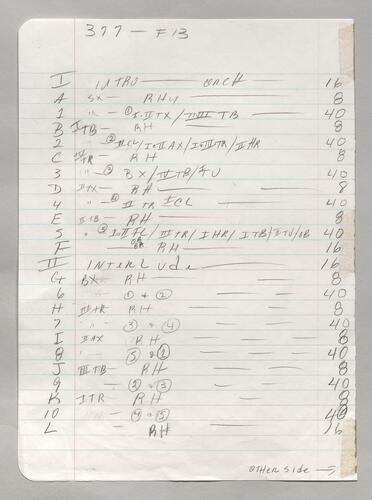 377 — F13
I INTRO — ORCH — 16
A SX — RHY — 8
1 " — ① I·II TX / I·II·III TB — 40
B I TB — RH — 8
2 " — ② II CL / I·II AX / I·II TR / II HR 40
C III TR — RH 8
3 " — ③ BX / IV TB / TU 40
D II TX — RH — 8
4 " — ④ II TR I CL — 40
E II TB — RH — 8
5 " ⑤ I·II FL / III TR / I HR / I TB / 40
F — RH — 16
II INTERLUDE — 16
G BX — RH — 8
6 " " ① & ② — 40
H III TR RH — 8
7 " " ③ & ④ — 40
I II AX RH — 8
8 " " ⑤ & ① — 40
J III TB — RH — 8
9 " — ② & ③ — 40
K I TR — RH — 8
10 " — ④ & ⑤ — 40
L — RH — 16
OTHER SIDE →